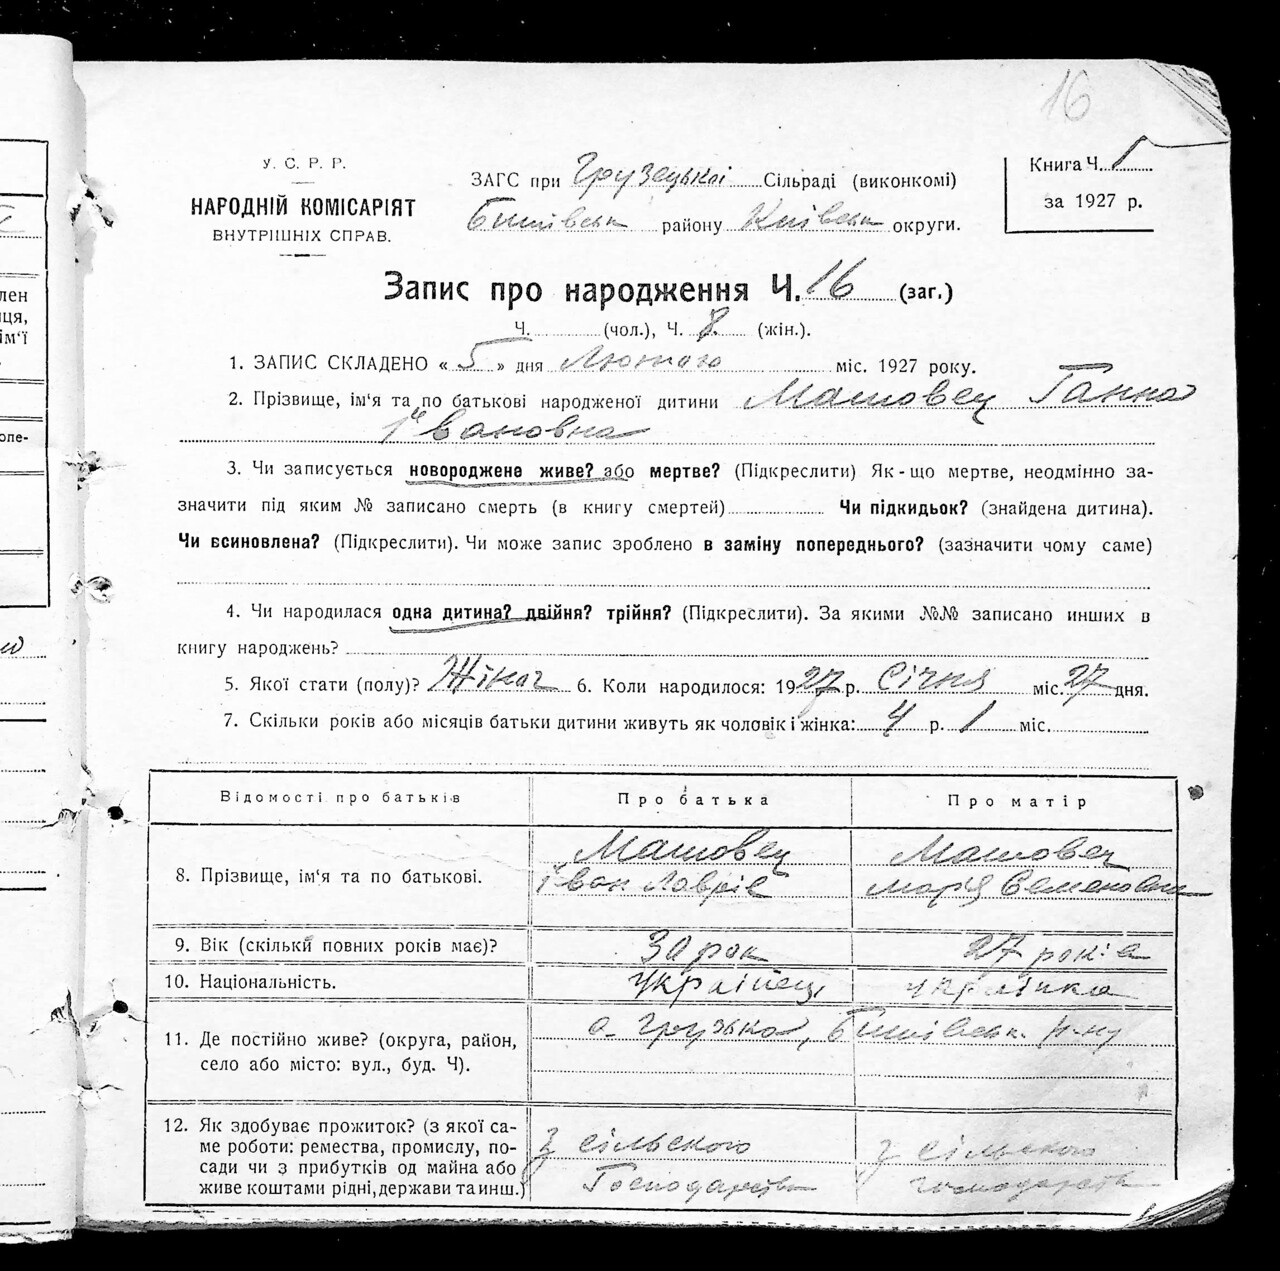 16
У. С. Р. Р.
НАРОДНІЙ КОМІСАРІЯТ
ВНУТРІШНІХ СПРАВ.
ЗАГС при Грузецької Сільраді (виконкомі)
Бишівськ району Київськ округи.
Книга Ч. 1
за 1927 р.
Запис про народження Ч. 16 (заг.)
Ч. (чол.), Ч. 8 (жін.).
1. ЗАПИС СКЛАДЕНО « 5 » дня Лютого міс. 1927 року.
2. Прізвище, ім'я та по батькові народженої дитини Машовец Ганна
Івановна
3. Чи записується новороджене живе? або мертве? (Підкреслити) Як-що мертве, неодмінно за-
значити під яким № записано смерть (в книгу смертей) Чи підкидьок? (знайдена дитина).
Чи всиновлена? (Підкреслити). Чи може запис зроблено в заміну попереднього? (зазначити чому саме)
4. Чи народилася одна дитина? двійня? трійня? (Підкреслити). За якими №№ записано инших в
книгу народжень?
5. Якої стати (полу)? Жіноч 6. Коли народилося: 1927 р. Січня міс. 27 дня.
7. Скільки років або місяців батьки дитини живуть як чоловік і жінка: 4 р. 1 міс.
Відомості про батьків Про батька Про матір
8. Прізвище, ім'я та по батькові. Машовец Машовец
Іван Лаврів Марія Семеновна
9. Вік (скільки повних років має)? 30 рок 27 років
10. Національність. Українец українка
11. Де постійно живе? (округа, район,
село або місто: вул., буд. Ч).
с. Грузька, Бишівськ. р-ну
12. Як здобуває прожиток? (з якої са-
ме роботи: ремества, промислу, по-
сади чи з прибутків од майна або
живе коштами рідні, держави та инш.)
з сільського з сільського
Господарства господарств
лен
ця,
ім'ї
оле-